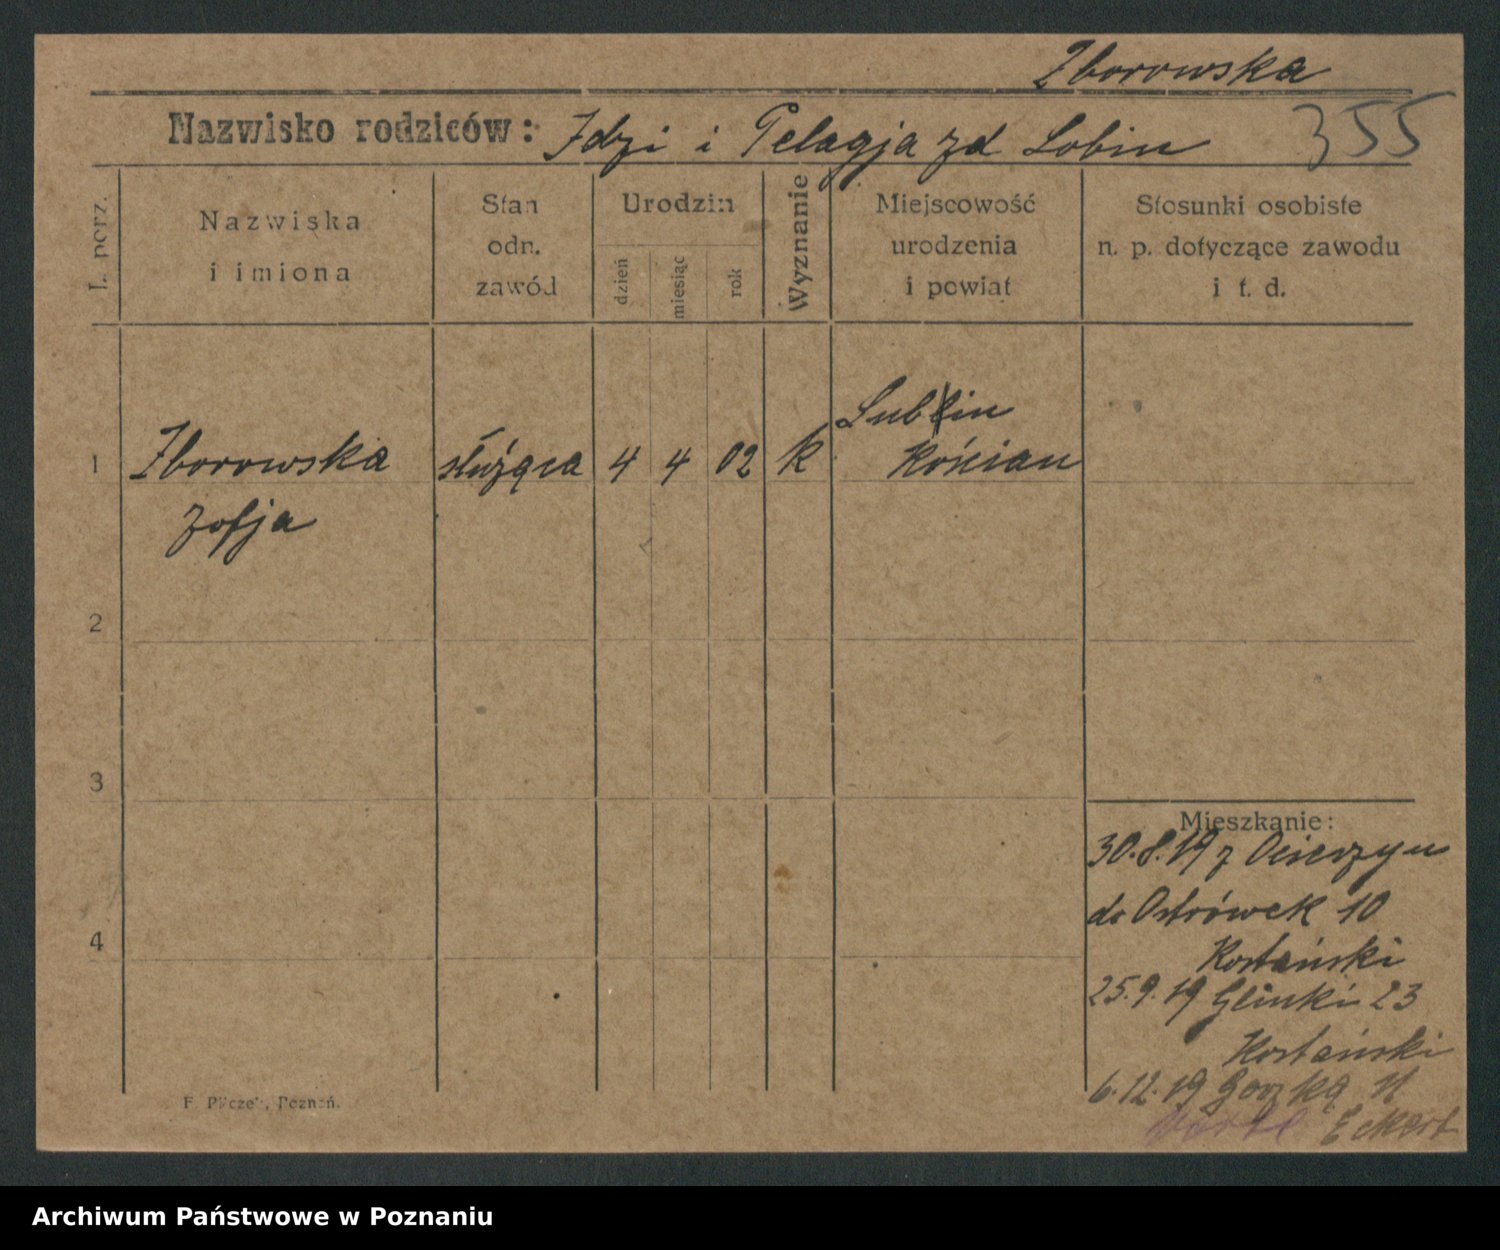 Zborowska
Nazwisko rodziców: Idzi i Pelagja zd Lobin
355
L. porz.
Nazwiska
i imiona
Stan
odn.
zawód
Urodzin
dzień
miesiąc
rok
Wyznanie
Miejscowość
urodzenia
i powiat
Stosunki osobiste
n. p. dotyczące zawodu
i t. d.
Lubin
1 Zborowska służąca 4 4 02 k Kościan
Zofja
2
3
Mieszkanie:
30.8.19 z Osieczyn
do Ostrówek 10
4
Kostański
25.9.19 Glinki 23
Kostański
6.12.19 11
Eckert
F. Pilczek, Poznań.
Archiwum Państwowe w Poznaniu